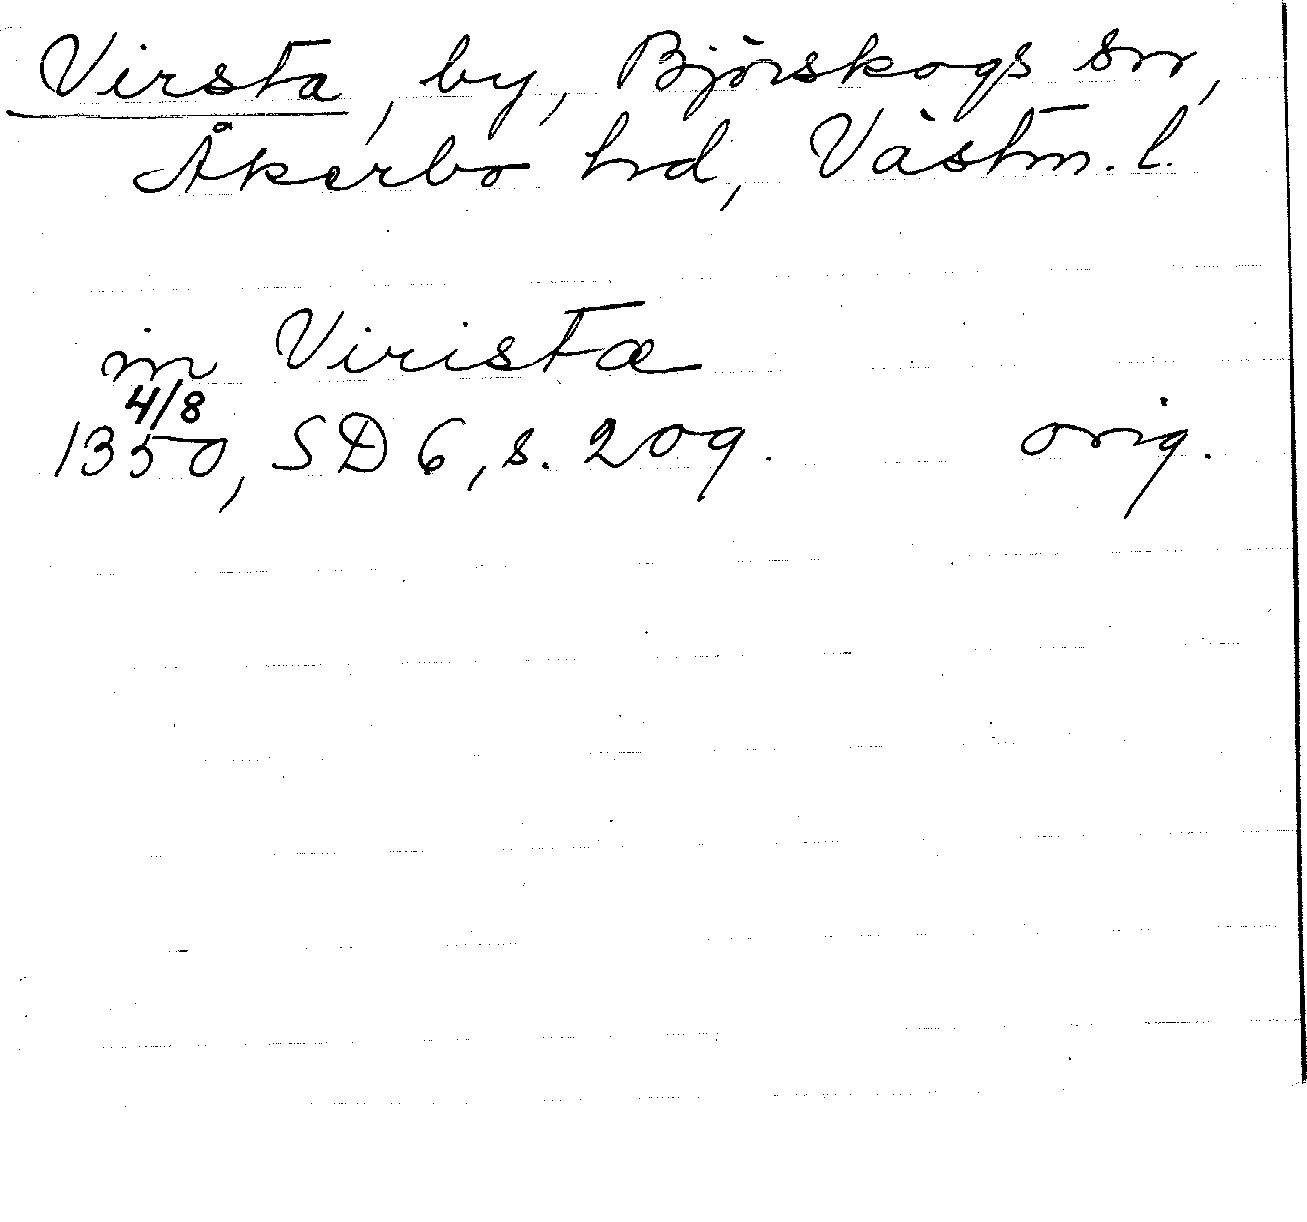 Virsta, by, Björskogs sn,
Åkerbo hd, Västm. l.
in Viristæ
4/8
1350, SD 6, s. 209. orig.